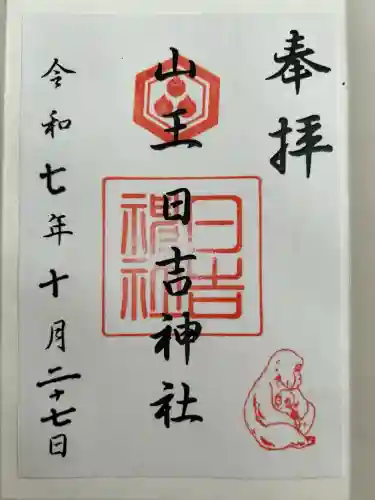 奉拝
山王日吉神社
日吉神社
令和七年十月二十七日